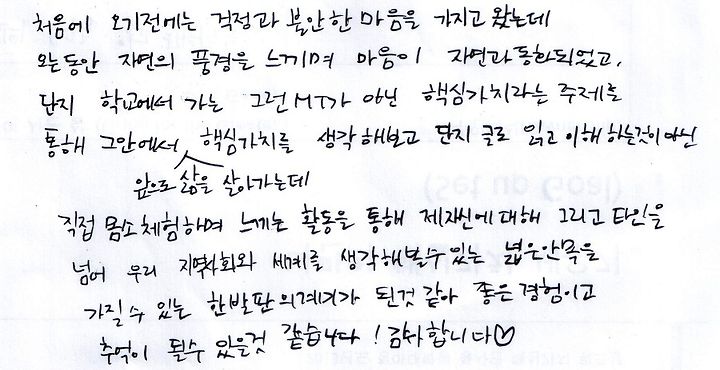 처음에 오기전에는 걱정과 불안한 마음을 가지고 왔는데
오는동안 자연의 풍경을 느끼며 마음이 자연과 동화되었고,
단지 학교에서 가는 그런 MT가 아닌 핵심가치라는 주제를
통해 그안에서 핵심가치를 생각해보고 단지 글로 읽고 이해하는것이 아닌
앞으로 삶을 살아가는데
직접 몸소 체험하며 느끼는 활동을 통해 제자신에 대해 그리고 타인을
넘어 우리 지역사회와 세계를 생각해볼수 있는 넓은안목을
가질 수 있는 한발판의계기가 된것 같아 좋은 경험이고
추억이 될수 있을것 같습니다! 감사합니다♡
(Set up Goal)